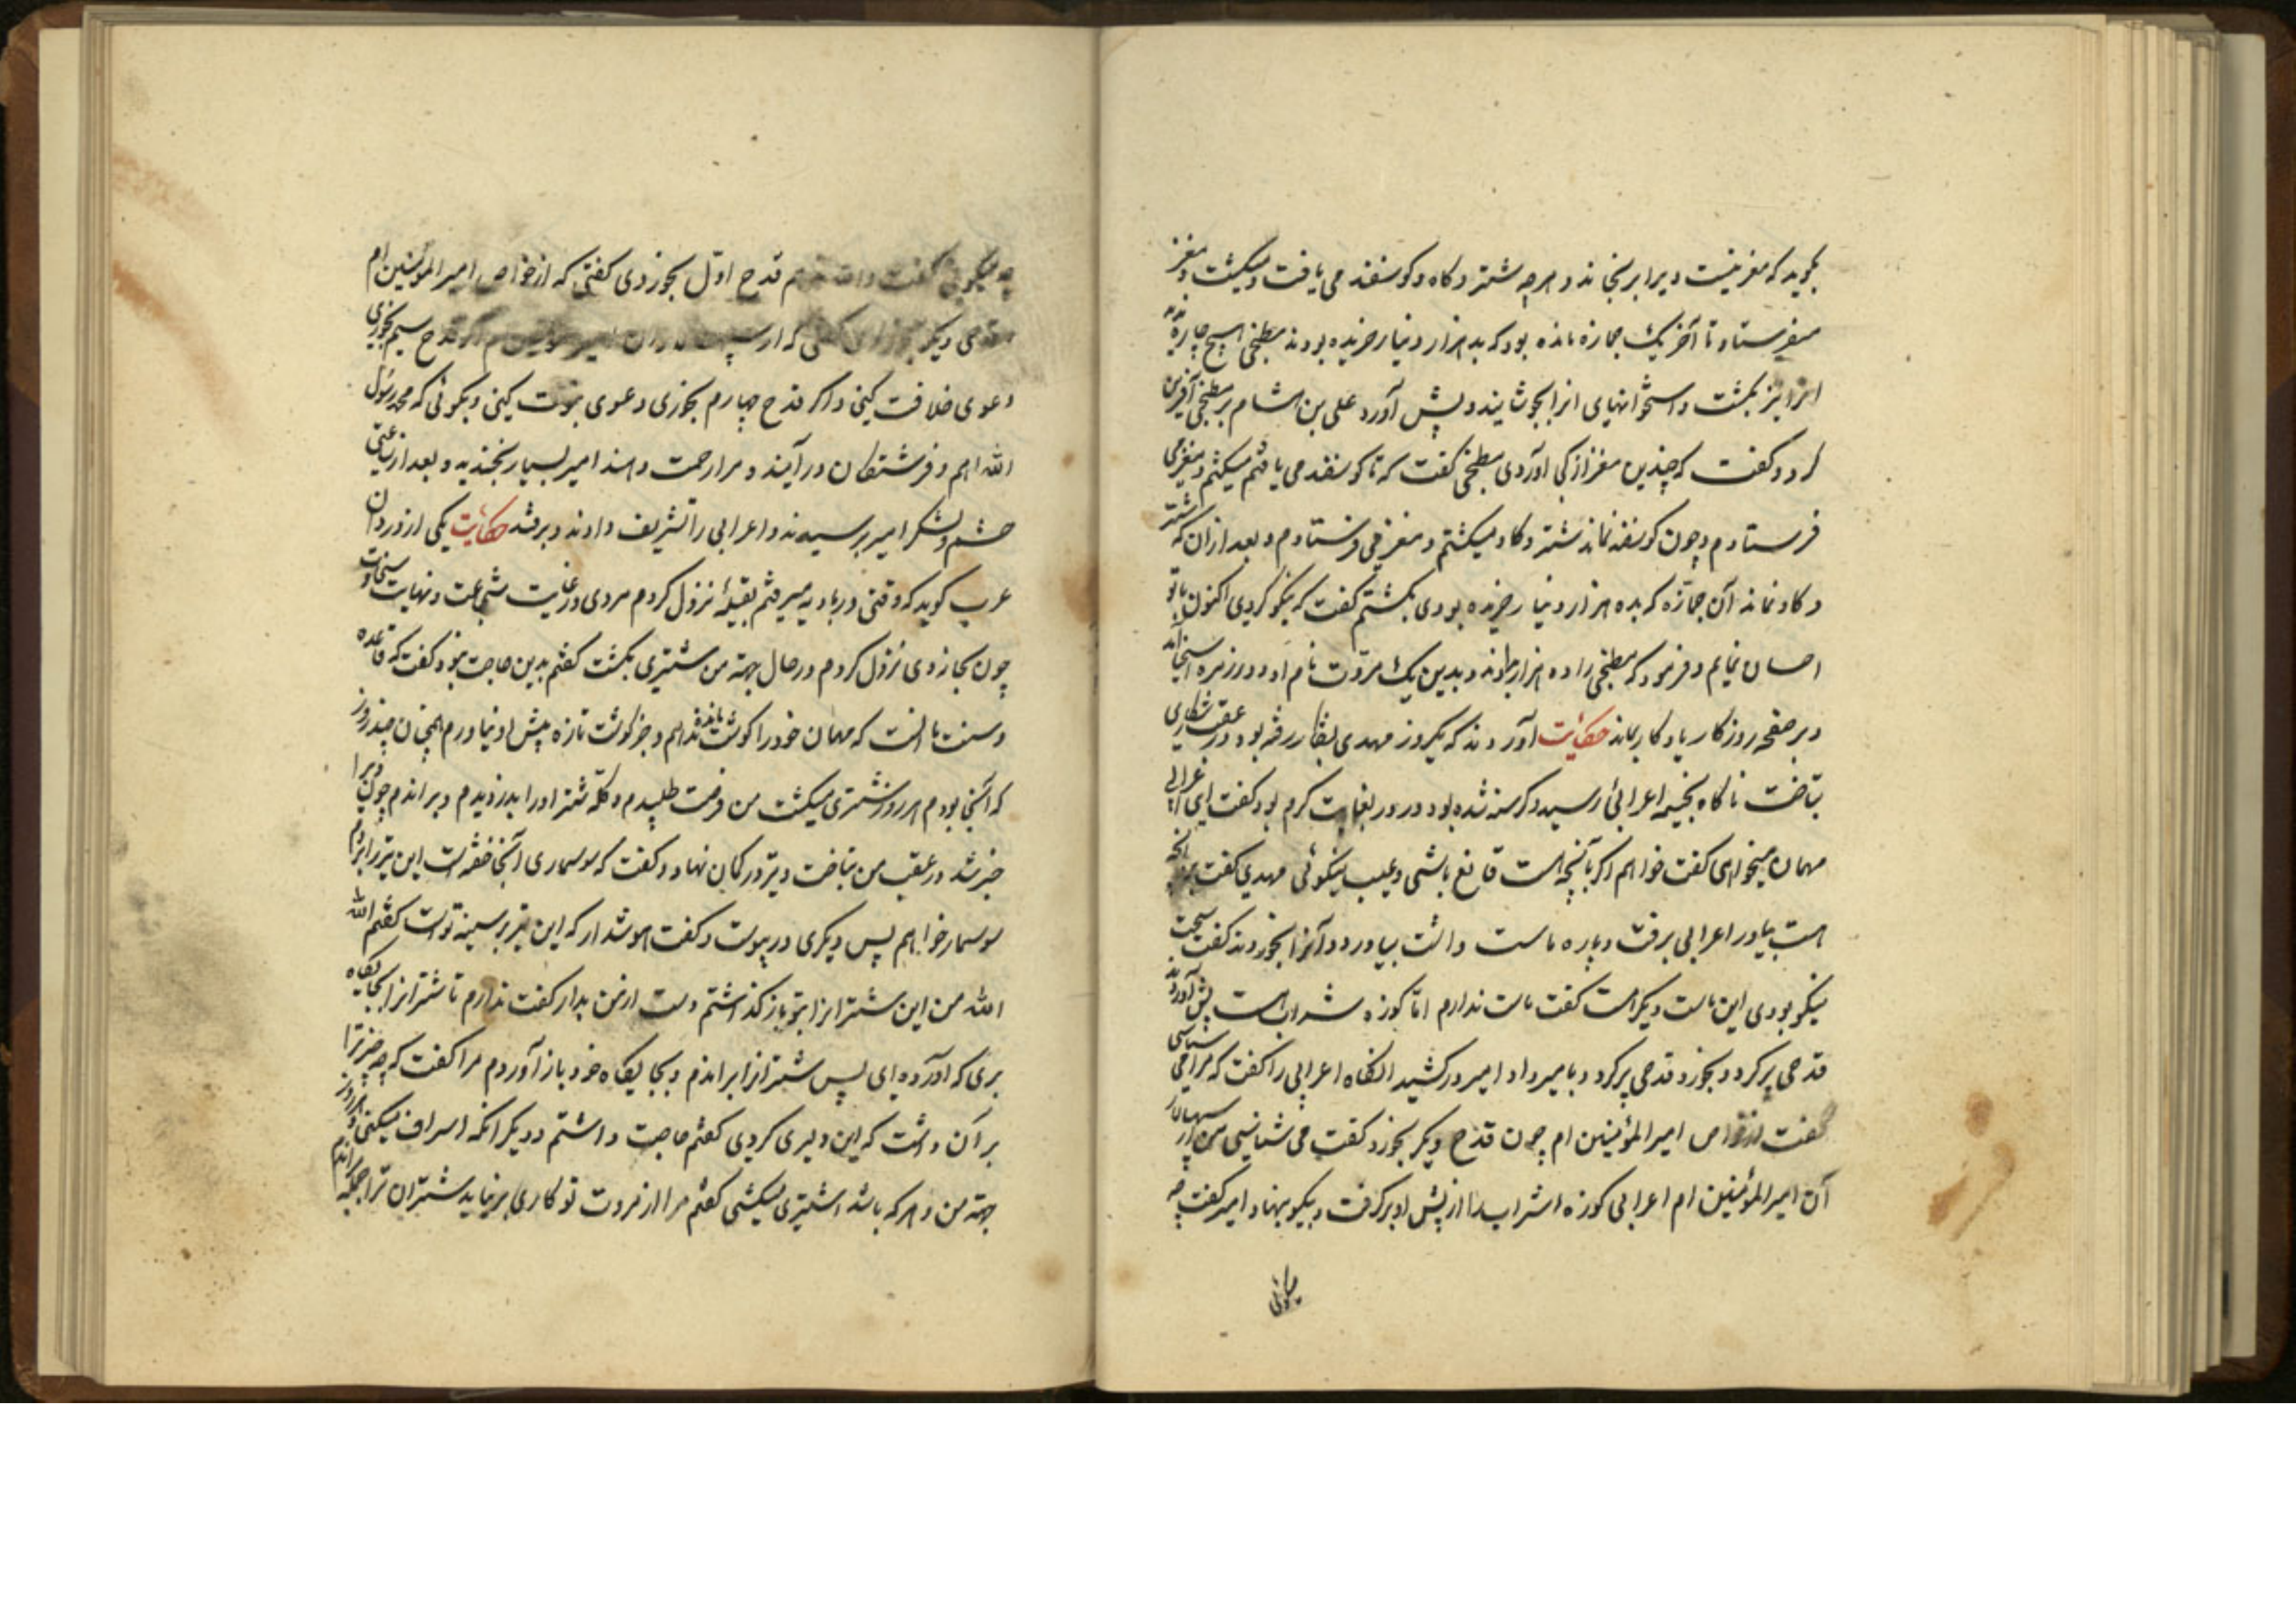 بگوید که مغز نیست ویرا برنجاند و هرچه شتر و گاو و گوسفند می یافت و میکشت و مغز
میفرستاد تا آخر یک جمازه مانده بود که بده هزار دینار خریده بودند مطبخی هیچ چاره ندید
انرا نیز بکشت و استخوانهای انرا بجوشانید و پیش آورد علی بن هشام بر مطبخی آفرین
کرد و گفت که چندین مغز از کجا آوردی مطبخی گفت که تا گوسفند می یافتم میکشتم و مغز می
فرستادم و چون گوسفند نماند شتر و گاو میکشتم و مغز می فرستادم و بعد از ان که شتر
و گاو نماند آن جمازه که بده هزار دینار خریده بودی بکشتم گفت که نیکو کردی اکنون با تو
احسان نمایم و فرمود که مطبخی را ده هزار بدادند و بدین یک مروت نام او در زمره اسخیا
و بر صفحه روزگار یادگار بماند حکایت آوردند که یکروز مهدی بشکار رفته بود و در عقب شکاری
بتاخت ناگاه بخیمه اعرابی رسید و گرسنه شده بود و روز بغایت گرم بود گفت ای اعرابی
مهمان میخواهی گفت خواهم اگر بآنچه هست قانع باشی و عیب نیکوئی مهدی گفت هر آنچه
هست بیاور اعرابی برفت و پاره ماست داشت بیاورد و آنرا بخوردند گفت سخت
نیکو بودی این ماست دیگر هست گفت ماست ندارم اما کوزه شراب هست پیش آورد
قدحی پر کرد و بخورد و قدحی پر کرد و بامیر داد امیر درکشید انگاه اعرابی را گفت که مرا می شناسی
گفت از خواص امیر المؤمنین ام چون قدح دیگر بخورد گفت می شناسی من
آن امیر المؤمنین ام اعرابی کوزه شراب را از پیش او برگرفت و بیکسو بنهاد امیر گفت چه
میگوئی
چه میگوئی گفت قدح اول بخوردی گفتی که از خواص امیر المؤمنین ام
قدحی دیگر گفتی که از سپه سالاران امیر المؤمنین ام اگر قدح سیم بخوری
دعوی خلافت کنی و اگر قدح چهارم بخوری دعوی نبوت کنی و بگوئی که محمد رسول
الله ام و فرشتگان در آیند و مرا زحمت دهند امیر بسیار بخندید و بعد از ساعتی
حشم و لشکر امیر برسیدند و اعرابی را تشریف دادند و برفتند حکایت یکی از دزدان
عرب گوید که وقتی در بادیه میرفتم بقبیله نزول کردم مردی در غایت شجاعت و نهایت سخاوت
چون بخانه وی نزول کردم در حال بجهة من شتری بکشت گفتم بدین حاجت نبود گفت که قاعده
و سنت ما انست که مهمان خود را گوشت مانده ندهیم و جز گوشت تازه پیش او نیاوریم همچنان چند روز
که آنجا بودم هر روز شتری میکشت من فرصت طلبیدم و گله شتر او را بدزدیدم و براندم چون ویرا
خبر شد در عقب من بتاخت و تیر در کمان نهاد و گفت که سوسماری آنجا خفته است این تیر را بر دم
سوسمار خواهم پس دیگری در پیوست و گفت هوشدار که این تیر بر سینه تو است گفتم الله
الله من این شترانرا بتو باز گذاشتم دست از من بدار گفت ندارم تا شترانرا بجایگاه
بری که آورده ای پس شترانرا براندم و بجایگاه خود باز آوردم مرا گفت که چه چیز ترا
بر آن داشت که این دلیری کردی گفتم حاجت داشتم و دیگر آنکه اسراف میکنی و هر روز
بجهة من و هر که باشد اشتری میکشی گفتم مرا از مروت تو کاری برنیاید شتران ترا جمله